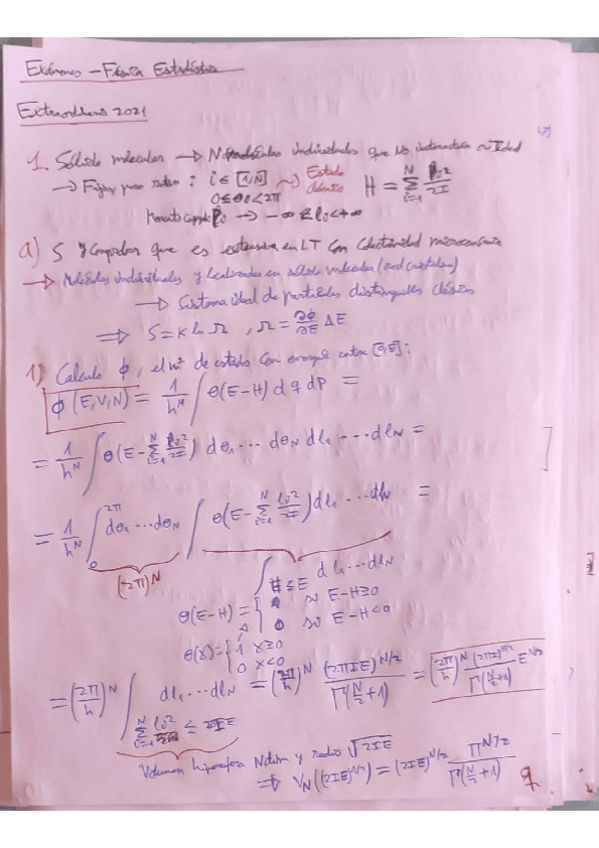 Exámenes - Física Estadística
Extraordinaria 2021
1. Sólido molecular → N moléculas individuales que no interactúan
→ Fijas para rotar: i ∈ [1,N] → Estado clásico H = Σ_{i=1}^{N} l_i²/2I
0 ≤ θi < 2π
Momento angular li → -∞ < li < +∞
a) S y comprobar que es extensiva en LT con colectividad microcanónica
→ Moléculas individuales y localizadas en sólido molecular (red cristalina)
→ Sistema ideal de partículas distinguibles clásicas
⇒ S = K ln Ω, Ω = ∂φ/∂E ΔE
1) Calculo φ, el nº de estado con energía entre [0,E]:
φ(E,V,N) = 1/h^N ∫ θ(E-H) dq dp =
= 1/h^N ∫ θ(E - Σ_{i=1}^{N} l_i²/2I) dθ1 ... dθN dl1 ... dlN =
= 1/h^N ∫_0^{2π} dθ1 ... dθN ∫ θ(E - Σ_{i=1}^{N} l_i²/2I) dl1 ... dlN =
(2π)^N ∫_{H≤E} dl1 ... dlN
θ(E-H) = { 1 si E-H≥0
0 si E-H<0
θ(x) = { 1 x≥0
0 x<0
= (2π/h)^N ∫_{Σ_{i=1}^{N} l_i² ≤ 2IE} dl1 ... dlN = (2π/h)^N (2πIE)^{N/2}/Γ(N/2+1) = (2π/h)^N (2πI)^{N/2}/Γ(N/2+1) E^{N/2}
Volumen hiperesfera N dim y radio √2IE
⇒ V_N((2IE)^{1/2}) = (2IE)^{N/2} π^{N/2}/Γ(N/2+1)